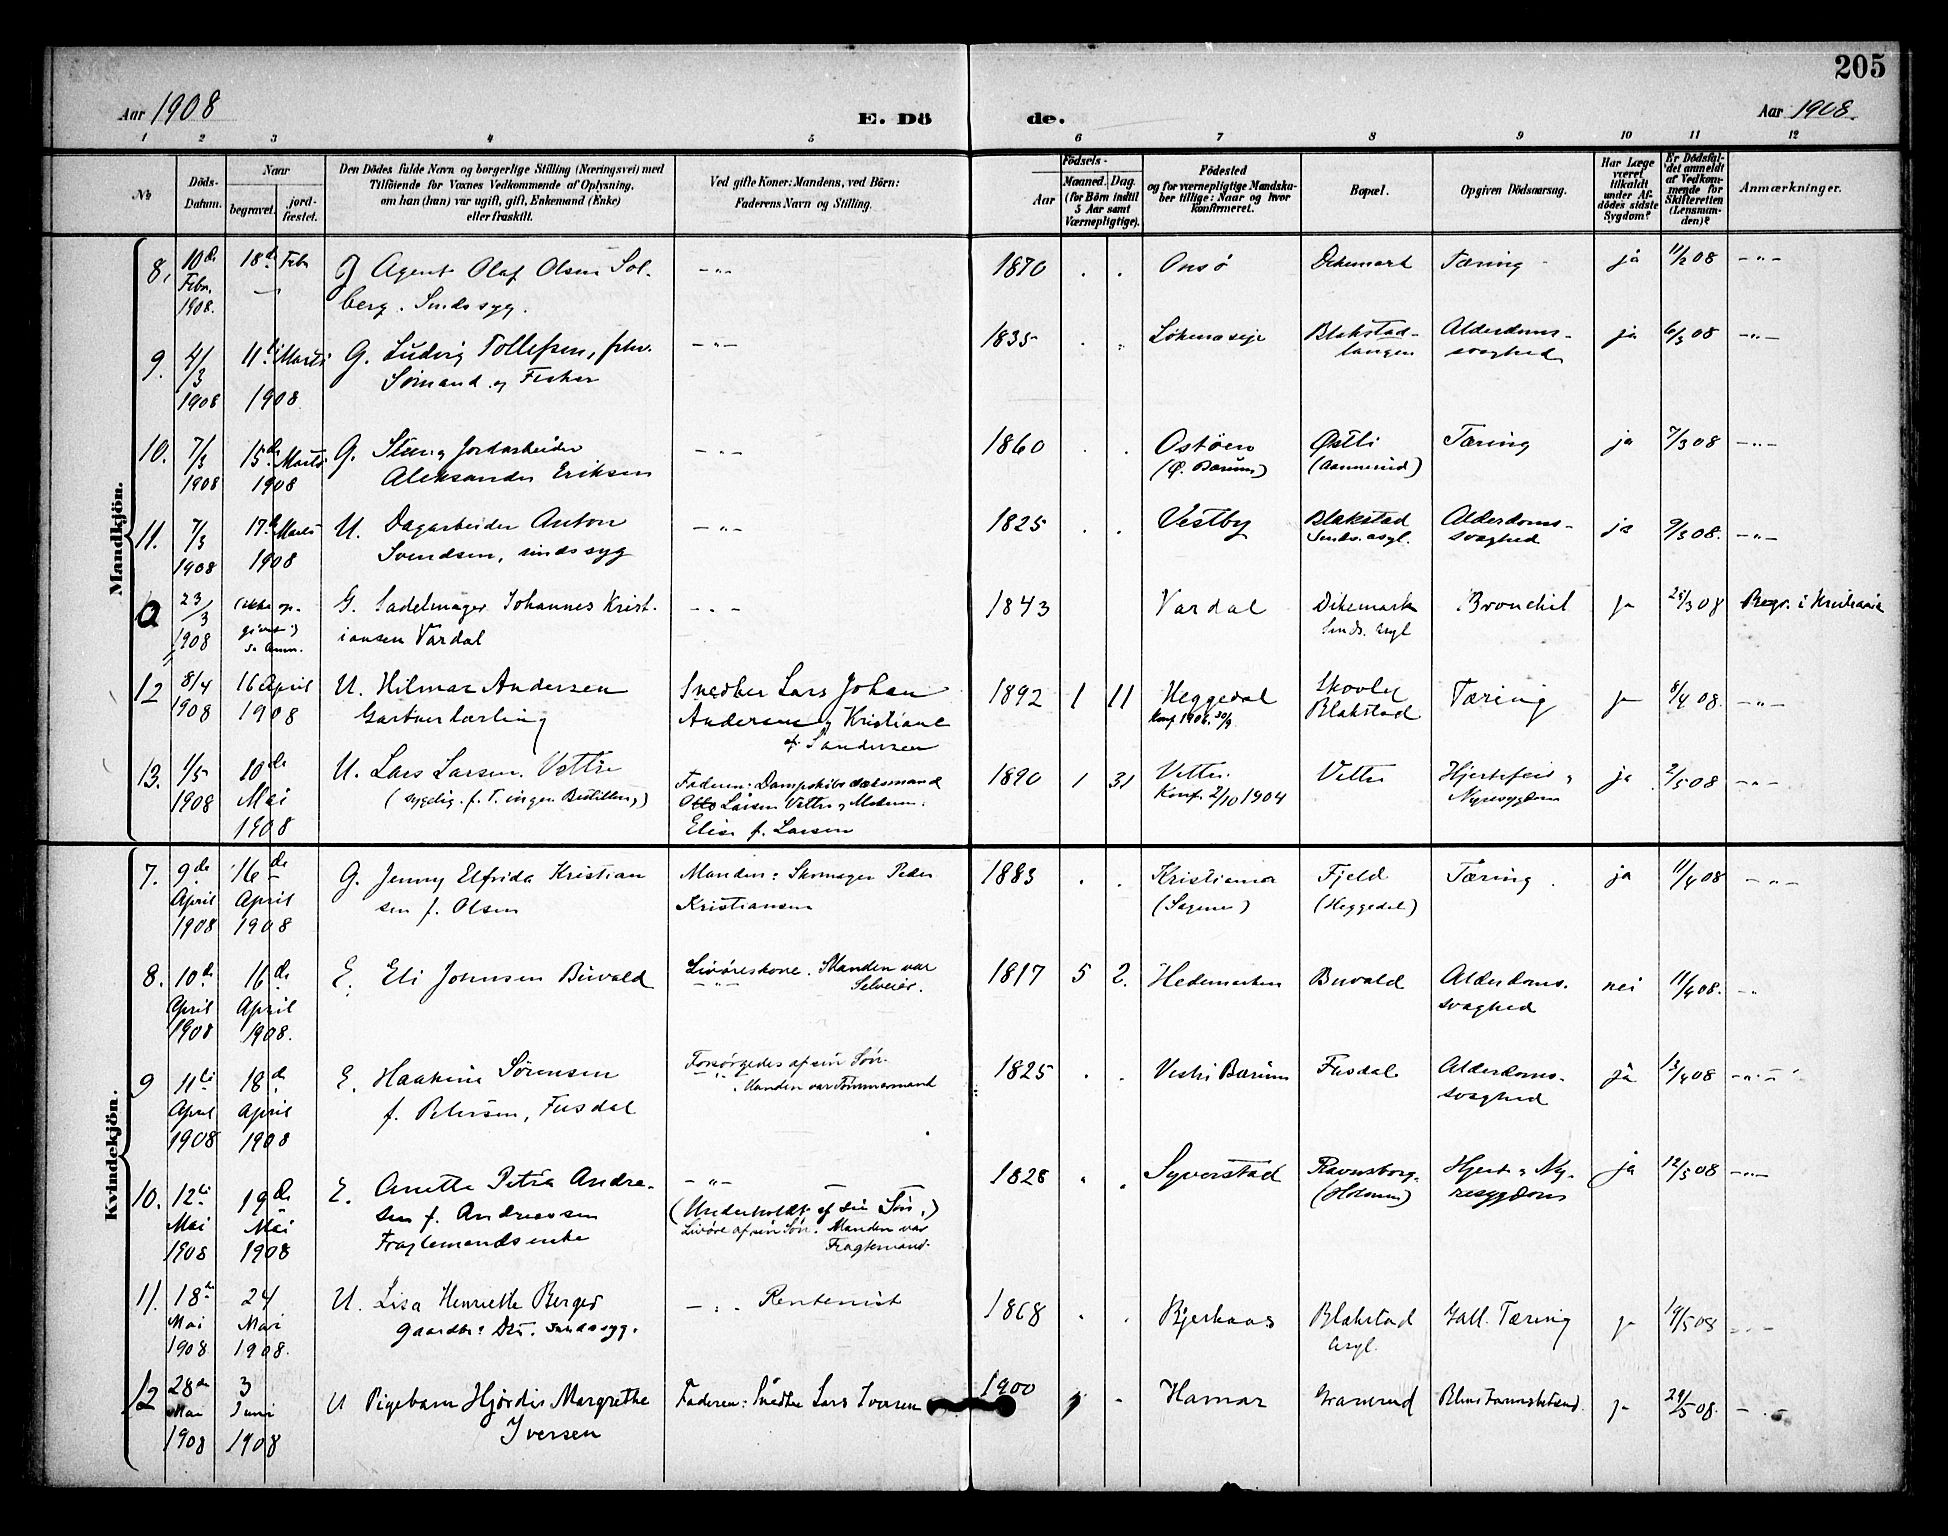 205
Aar 1908
E. Dö
de.
Aar 1908.
1 2 3 4 5 6 7 8 9 10 11 12
No
Döds-
Datum.
Naar
begravet.
jord-
fæstet.
Den Dödes fulde Navn og borgerlige Stilling (Næringsvei) med
Tilföiende for Voxnes Vedkommende af Oplysning,
om han (hun) var ugift, gift, Enkemand (Enke)
eller fraskilt.
Ved gifte Koner: Mandens, ved Börn:
Faderens Navn og Stilling.
Födsels-
Aar
Maaned. Dag.
(for Börn indtil
5 Aar samt
Værnepligtige).
Födested
og for værnepligtige Mandska-
ber tillige: Naar og hvor
konfirmeret.
Bopæl.
Opgiven Dödsaarsag.
Har Læge
været
tilkaldt
under Af-
dödes sidste
Sygdom?
Er Dödsfal-
det anmeldt
af Vedkom-
mende for
Skifteretten
(Lensman-
den)?
Anmærkninger.
Mandkjön.
8, 10de Febr. 1908. 18de Febr G Agent Olaf Olsen Sol-
berg. Sindssyg. -"- 1870 . . Onsö Dikemark Tæring ja 11/2 08 -"-
9. 4/3 1908 11te Marts 1908 G. Ludvig Tollefsen, frhv.
Sömand og Fisker -"- 1835 . . Blakstad-
tangen Alderdoms-
svaghed ja 6/3 08 -"-
10. 7/3 1908 15de Marts 1908 G. Jordarbeider
Aleksander Eriksen -"- 1860 . . Ostöen
(Ø. Bærum) Østli
Tæring ja 7/3 08 -"-
11. 7/3 1908 17de Marts 1908 U. Dagarbeider Anton
Svendsen, sindssyg -"- 1825 . . Vestby Blakstad
Sinds.asyl. Alderdoms-
svaghed ja 9/3 08. -"-
a 23/3 1908 (ikke op-
givet)
se Anm. G. Sadelmager Johannes Krist-
iansen Vardal -"- 1843 Vardal Dikemark
Sinds. asyl Bronchit ja 25/3 08 Begr. i Kristiania
12 8/4 1908 16 April 1908 U. Hilmar Andersen
Gartnerlærling Snedker Lars Johan
Andersen og Kristiane
f. Sandersen 1892 1 11 Heggedal
Blakstad Tæring ja 8/4 08. -"-
13. 1/5 1908 10de Mai 1908 U. Lars Larsen Vettre
(sygelig. f. T. ingen Bestilling) Faderen: Dampskibsdæksmand
Otto Larsen Vettre og Moderen:
Elise f. Larsen 1890 1 31 Vettre.
Konf. 2/10 1904 Vettre Hjertefeil og
Nyresygdom ja 2/5 08 -"-
Kvindekjön.
7. 9de April 1908 16de April 1908 G. Jenny Elfrida Kristian
sen f. Olsen Manden: Skomager Peder
Kristiansen 1883 . . Kristiania
(Sagene) Fjeld
(Heggedal) Tæring. ja 11/4 08 -"-
8. 10de April 1908 16de April 1908. E. Eli Johnsen Buvald Livöreskone. Manden var
Selveier. 1817 5 2. Hedemarken Buvald Alderdoms-
svaghed nei 11/4 08. -"-
9 11te April 1908 18de April 1908 E. Haakine Sörensen
f. Petersen, Fusdal Forsörgedes af sin Sön.
Manden var Tömmermand 1825 . . Vestre Bærum Fusdal Alderdoms-
svaghed ja 13/4 08 -"-
10. 12te Mai 1908 19de Mai 1908 E. Anette Petra Andre-
sen f. Andreassen
Fragtemandsenke -"-
(Underholdt af sin Sön.)
Livöre af sin Sön. Manden var
Fragtemand. 1828 . . Syverstad Ravnsborg
(Holmen) Hjerte og Ny-
resygdom ja 12/5 08 -"-
11. 18de Mai 1908 24 Mai 1908. U. Lisa Henriette Berger
Gaardbr. Dtr. sindssyg. -"- Rentenist 1868 . . Bjerkaas Blakstad
Asyl. Gall. Tæring ja 19/5 08 -"-
12 28de Mai 1908 3 Juni 1908 U Pigebarn Hjördis Margrethe
Iversen Faderen: Snedker Lars Iversen 1900 Hamar ja 29/5 08. -"-